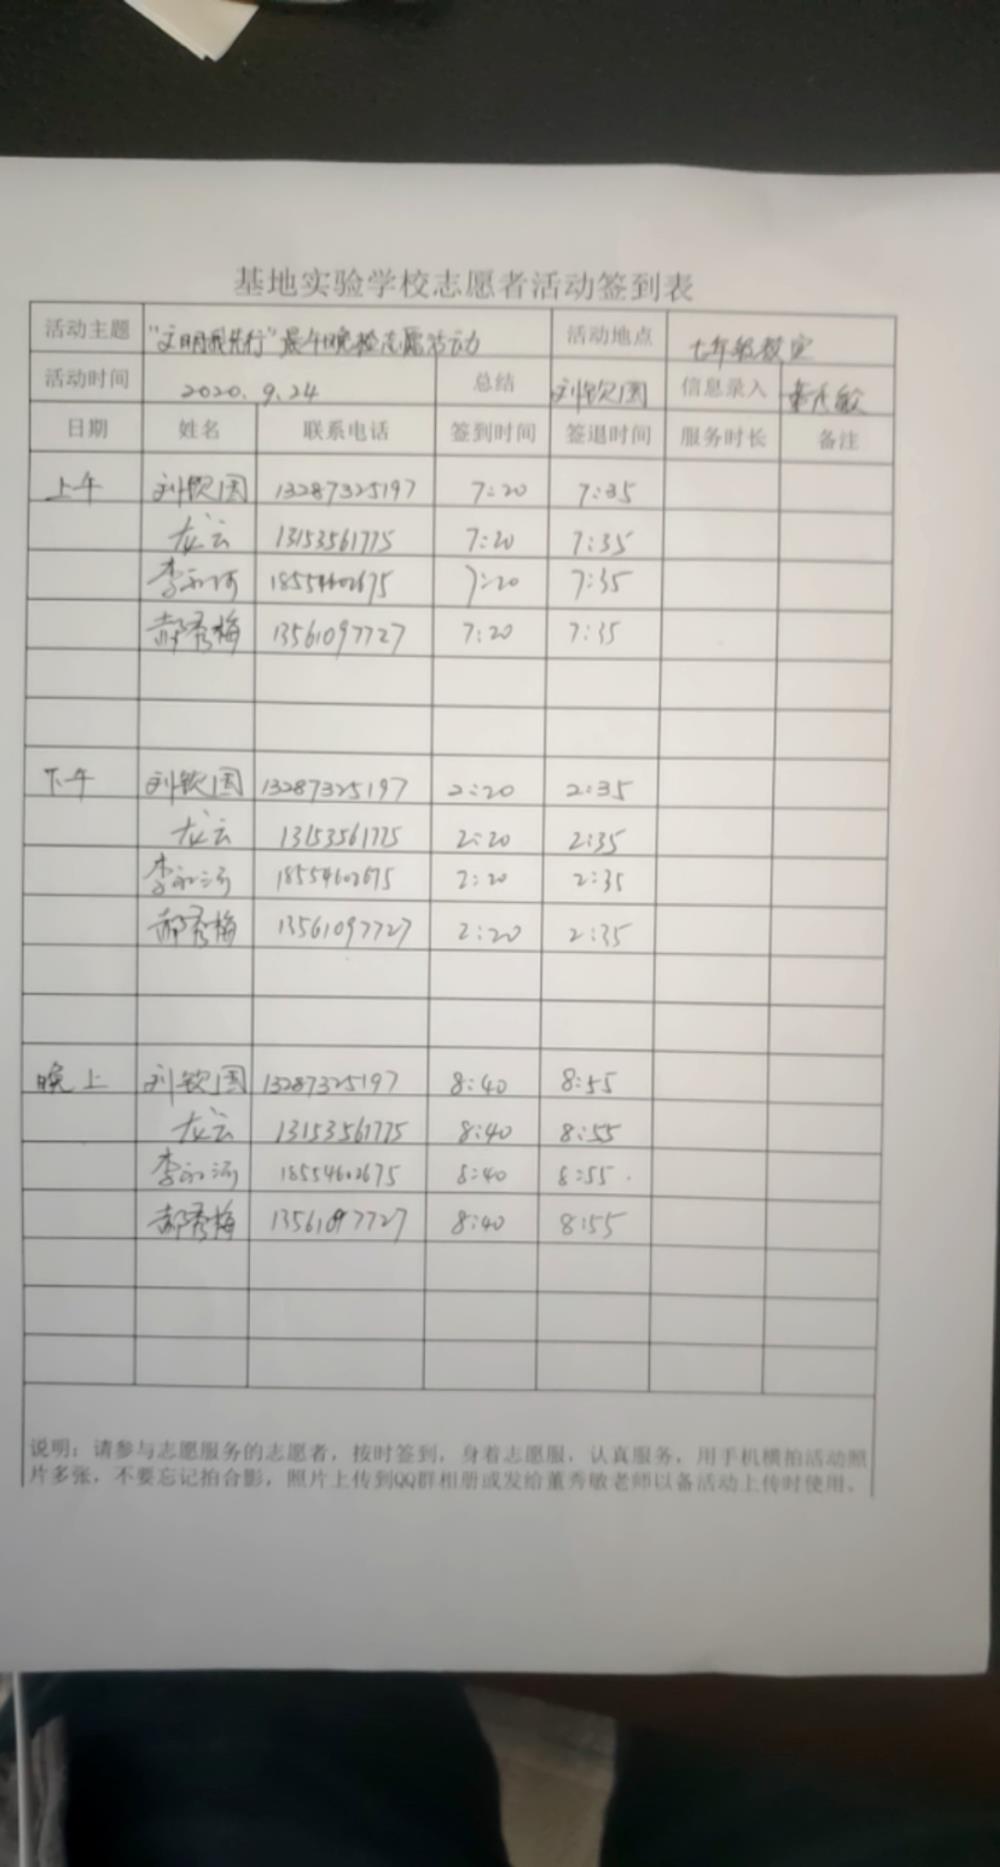 基地实验学校志愿者活动签到表
活动主题 "文明我先行"晨午晚检志愿活动 活动地点 七年级教室
活动时间 2020.9.24 总结 刘钦国 信息录入 董秀敏
日期 姓名 联系电话 签到时间 签退时间 服务时长 备注
上午 刘钦国 13287325197 7:20 7:35
龙云 13153561775 7:20 7:35
李 18554602675 7:20 7:35
郝秀梅 13561097727 7:20 7:35
下午 刘钦国 13287325197 2:20 2:35
龙云 13153561775 2:20 2:35
李 18554602675 2:20 2:35
郝秀梅 13561097727 2:20 2:35
晚上 刘钦国 13287325197 8:40 8:55
龙云 13153561775 8:40 8:55
李 18554602675 8:40 8:55
郝秀梅 13561097727 8:40 8:55
说明：请参与志愿服务的志愿者，按时签到，身着志愿服，认真服务，用手机横拍活动照
片多张，不要忘记拍合影，照片上传到QQ群相册或发给董秀敏老师以备活动上传时使用。